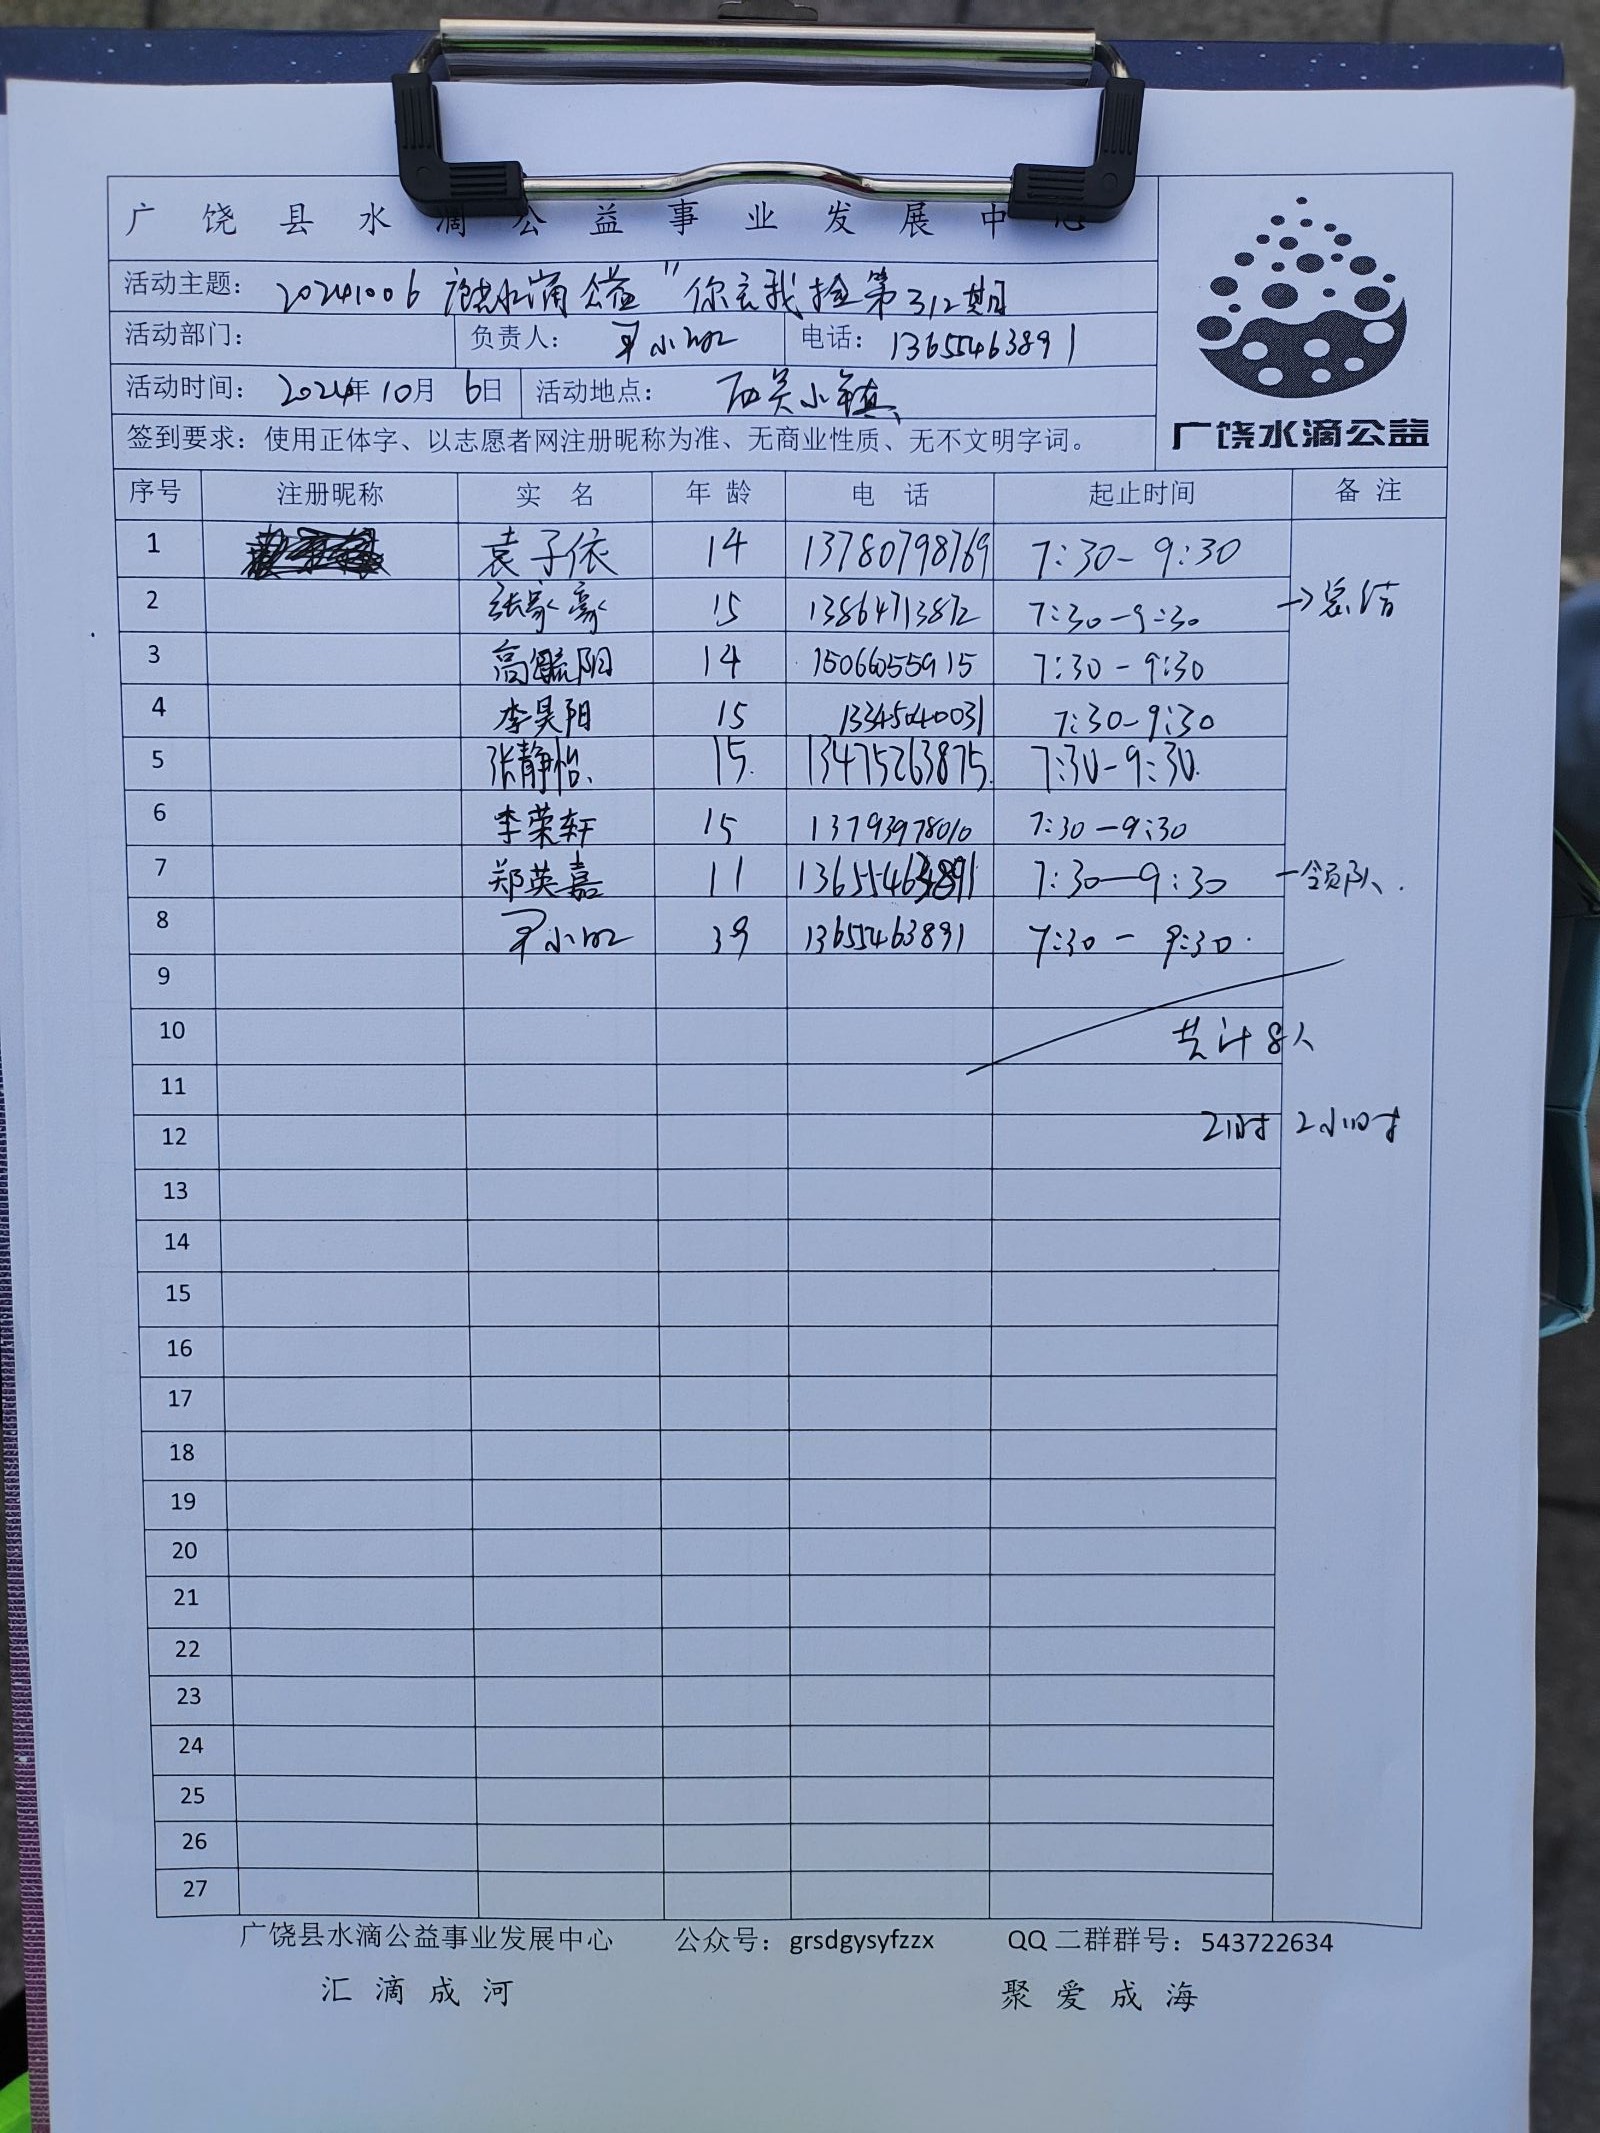 广饶县水滴公益事业发展中心
活动主题：20241006 广饶水滴公益“你丢我捡第312期
活动部门： 负责人： 小 电话：13655463891
活动时间：2024年10月6日 活动地点：西吴小镇
签到要求：使用正体字、以志愿者网注册昵称为准、无商业性质、无不文明字词。
广饶水滴公益
序号 注册昵称 实名 年龄 电话 起止时间 备注
1 袁子依 14 13780798769 7:30-9:30
2 张家豪 15 13864713872 7:30-9:30 →总结
3 高毓阳 14 15066055915 7:30-9:30
4 李昊阳 15 13345040031 7:30-9:30
5 张静怡 15. 13475263875. 7:30-9:30.
6 李荣轩 15 13793978010 7:30-9:30
7 郑英嘉 11 13655463891 7:30-9:30 -领队.
8 小 39 13655463891 7:30-9:30.
9
10 共计8人
11
12 2小时
13
14
15
16
17
18
19
20
21
22
23
24
25
26
27
广饶县水滴公益事业发展中心 公众号：grsdgysyfzzx QQ二群群号：543722634
汇滴成河 聚爱成海